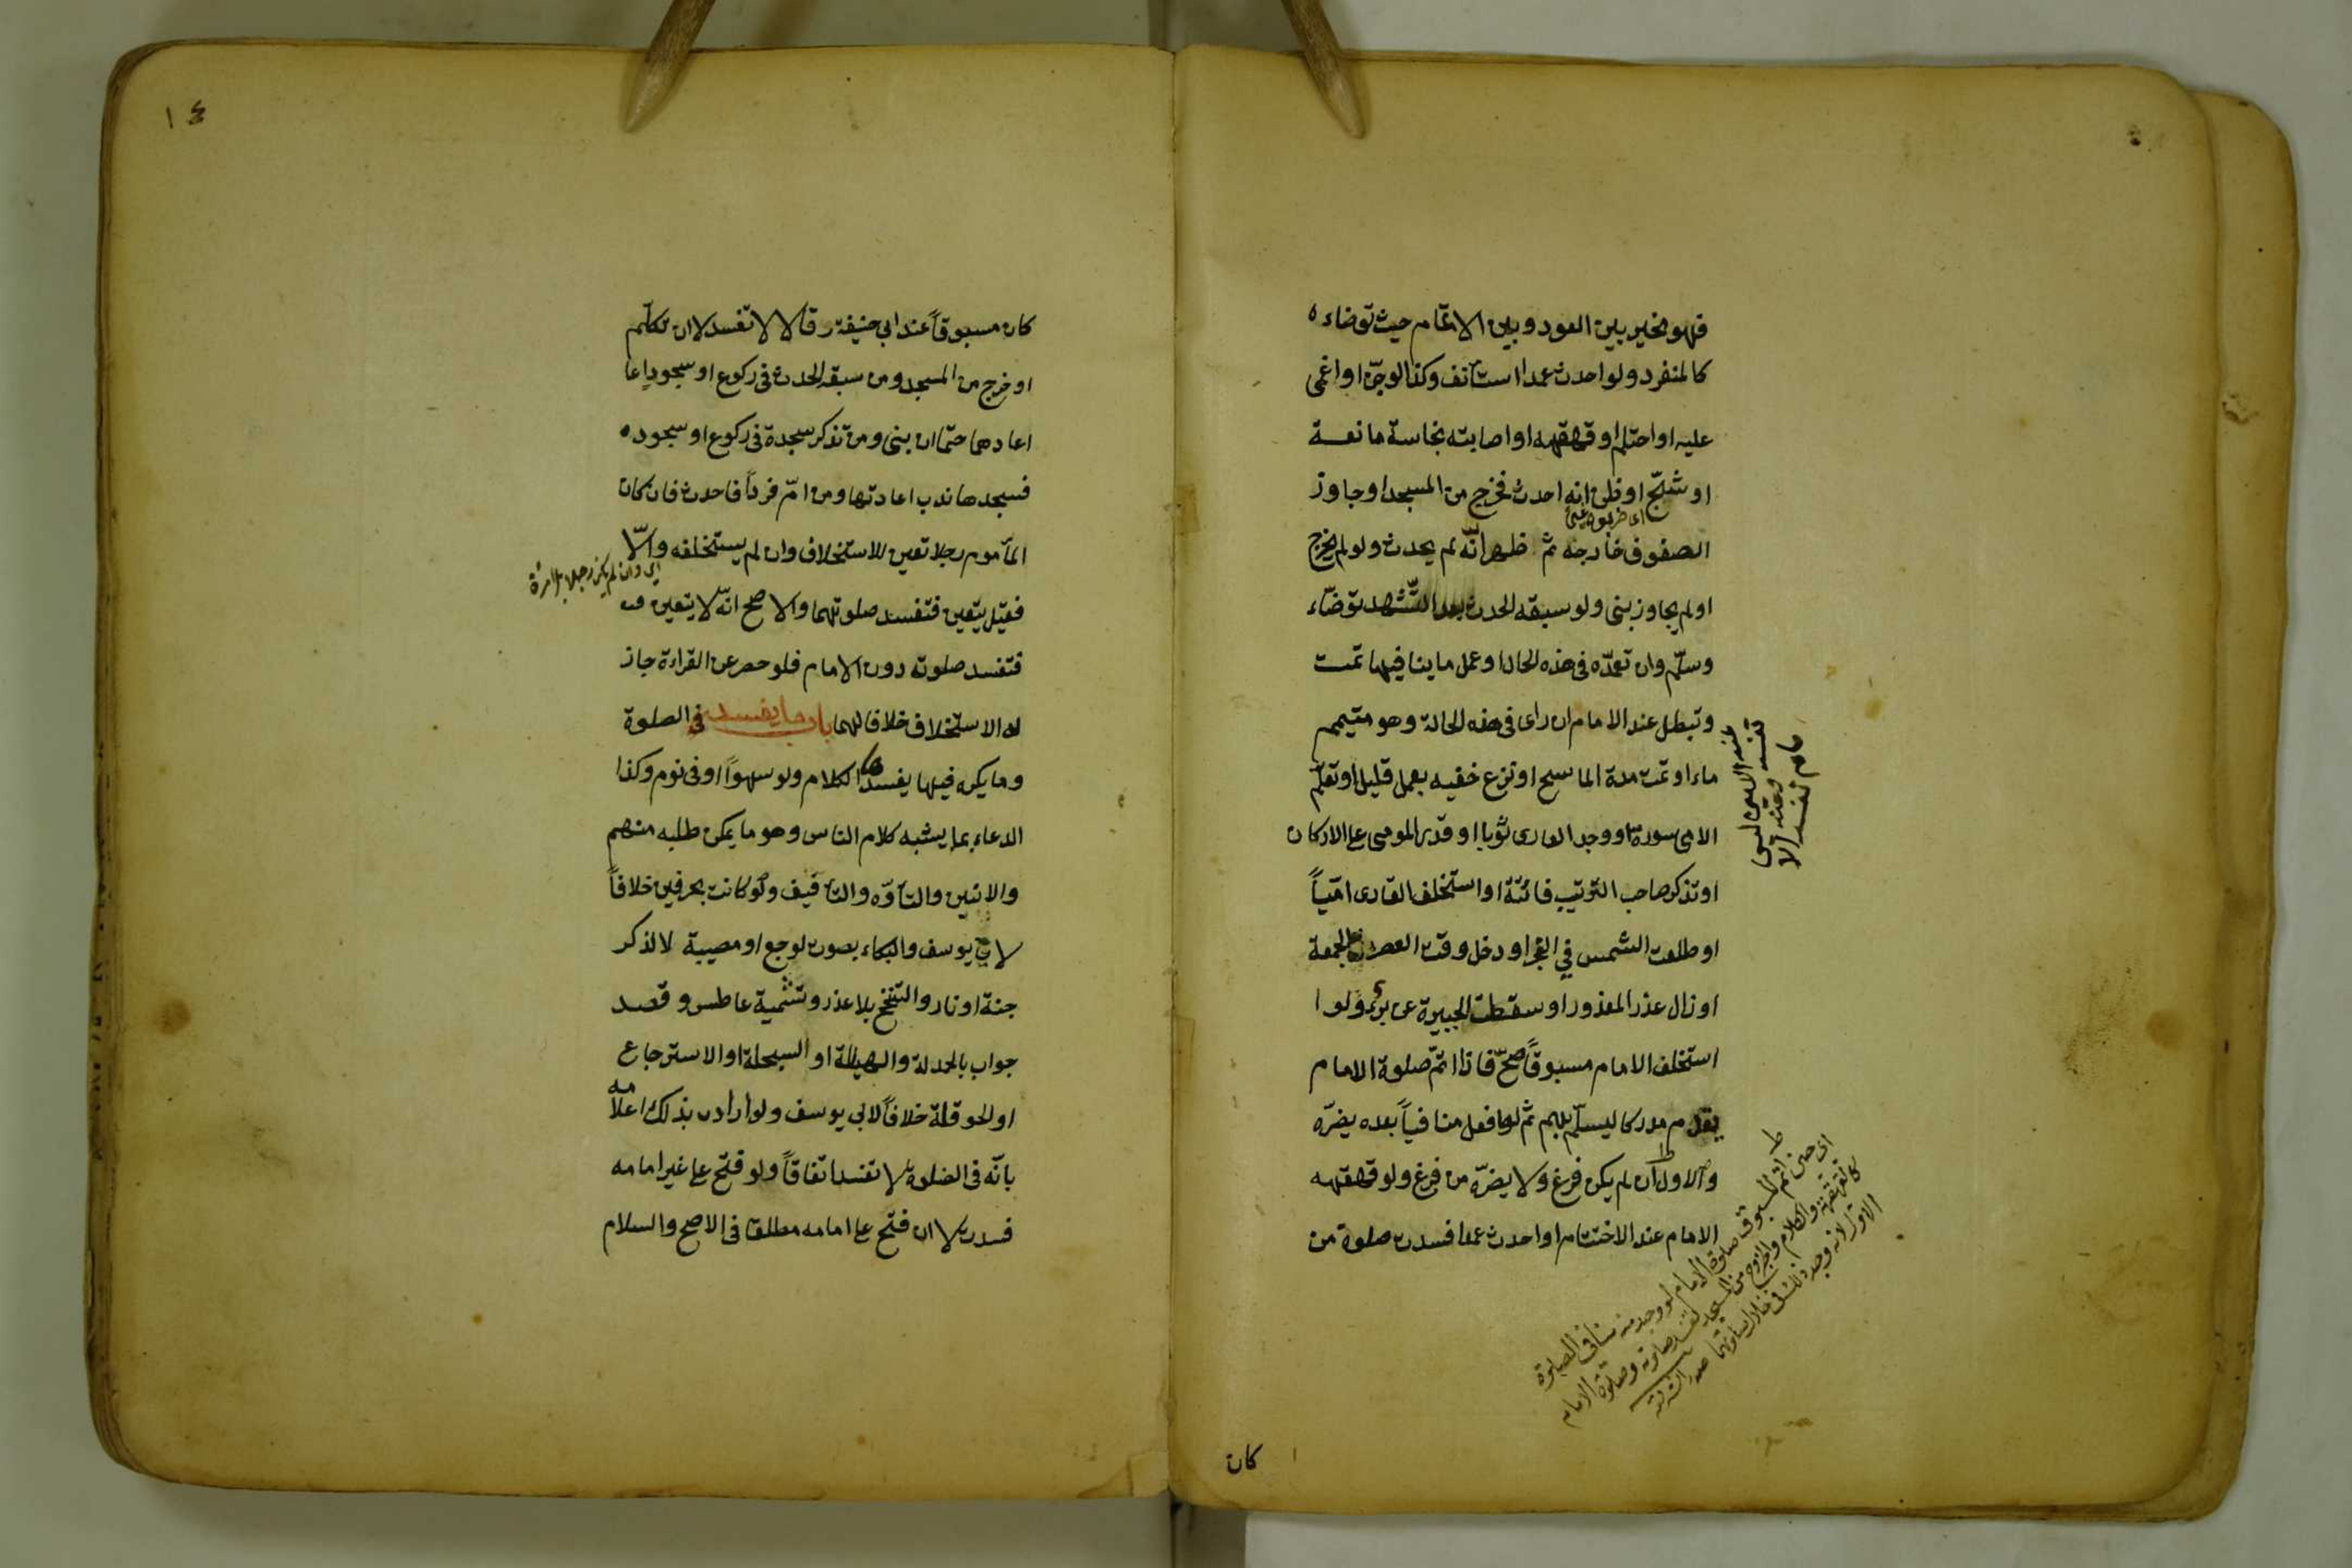 فهو مخير بين العود وبين الاتمام حيث توضاء ه
كالمنفرد ولو احدث عمدا استأنف وكذا لو جنّ او اغمى
عليه او احتلم او قهقهه او اصابته نجاسة مانعة
او شجّ او ظن انه احدث فخرج من المسجد او جاوز
الصفوف خارجه ثم ظهر انّه لم يحدث ولو لم يخرج
او لم يجاوز بنى ولو سبقه الحدث بعد التّشهد توضّاء
وسلّم وان تعمّده فى هذه الحال او عمل ما ينافيها تمت
وتبطل عند الامام ان راى فى هذه الحالة وهو متيمم
ماء او تمت مدة الماسح او نزع خفيه بعمل قليل او تعلّم
الامى سورة او وجد العارى ثوبا او قدر المومى على الاركان
او تذكر صاحب الترتيب فائتة او استخلف القارى امّياً
او طلعت الشمس في الفجر او دخل وقت العصر فى الجمعة
او زال عذر المعذور او سقطت الجبيرة عن برء ولو ا
استخلف الامام مسبوقاً صحّ فاذا اتمّ صلوة الامام
يقدم مدركا ليسلّم بهم ثم لو فعل منافياً بعده يضرّه
والاول ان لم يكن فرغ ولا يضرّه من فرغ ولو قهقهه
الامام عند الاختتام او احدث عمدا فسدت صلوة من
اى حين اتم المسبوق صلوة الامام لو وجد منه منافى الصلوة
كالقهقهة والكلام والخروج من المسجد تفسد صلوته وصلوة الامام
الاول لانه وجد ذلك فى خلال صلوتهما صدر الشريعة
كان
١٤
كان مسبوقاً عند ابى حنيفة رقالا لا تفسد لا ان تكلّم
او خرج من المسجد ومن سبقه الحدث فى ركوع او سجود اعا
اعادهما حتما ان بنى ومن تذكر سجدة فى ركوع او سجود ه
فسجدها ندب اعادتها ومن امّ فرداً فاحدث فان كان
المأموم رجلا تعين للاستخلاف وان لم يستخلفه والّا
اى وان لم يكن رجلا بل امرأة
فقيل يتعين فتفسد صلوتهما والاصح انّه لا يتعين
فتفسد صلوته دون الامام فلو حصر عن القراءة جاز
له الاستخلاف خلافا لهما باب ما يفسد فى الصلوة
وما يكره فيها يفسدها الكلام ولو سهواً او فى نوم وكذا
الدعاء بما يشبه كلام الناس وهو ما يمكن طلبه منهم
والانين والتأوّه والتأفيف ولو كانت بحرفين خلافاً
لابى يوسف والبكاء بصوت لوجع او مصيبة لا لذكر
جنة او نار والتنحنح بلا عذر وتشميت عاطس وقصد
جواب بالحمدلة والهيللة او السبحلة او الاسترجاع
او الحوقلة خلافاً لابى يوسف ولو اراد بذلك اعلامه
بانّه فى الصلوة لا تفسد اتفاقاً ولو فتح على غير امامه
فسدت لا ان فتح على امامه مطلقا فى الاصح والسلام